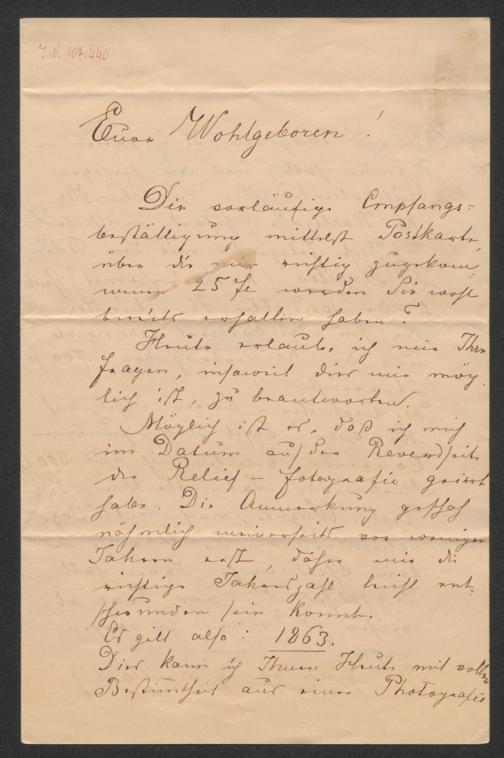 J.N. 107.440
Euer Wohlgeboren!
Die vorläufige Empfangs=
bestättigung mittelst Postkarte,
über die mir richtig zugekom=
menen 25 fl werden Sie wohl
bereits erhalten haben?
Heute erlaube ich mir Ihre
Fragen, insoweit dies mir mög=
lich ist, zu beantworten.
Möglich ist es, daß ich mich
im Datum auf der Reversseite
der Relief-fotografie geirrt
habe. Die Anmerkung geschah
nähmlich meinerseits vor wenigen
Jahren erst, daher mir die
richtige Jahreszahl leicht ent=
schwunden sein konnte.
Es gilt also: 1863.
Dies kann ich Ihnen Heute mit voller
Bestimtheit aus einer Photografie